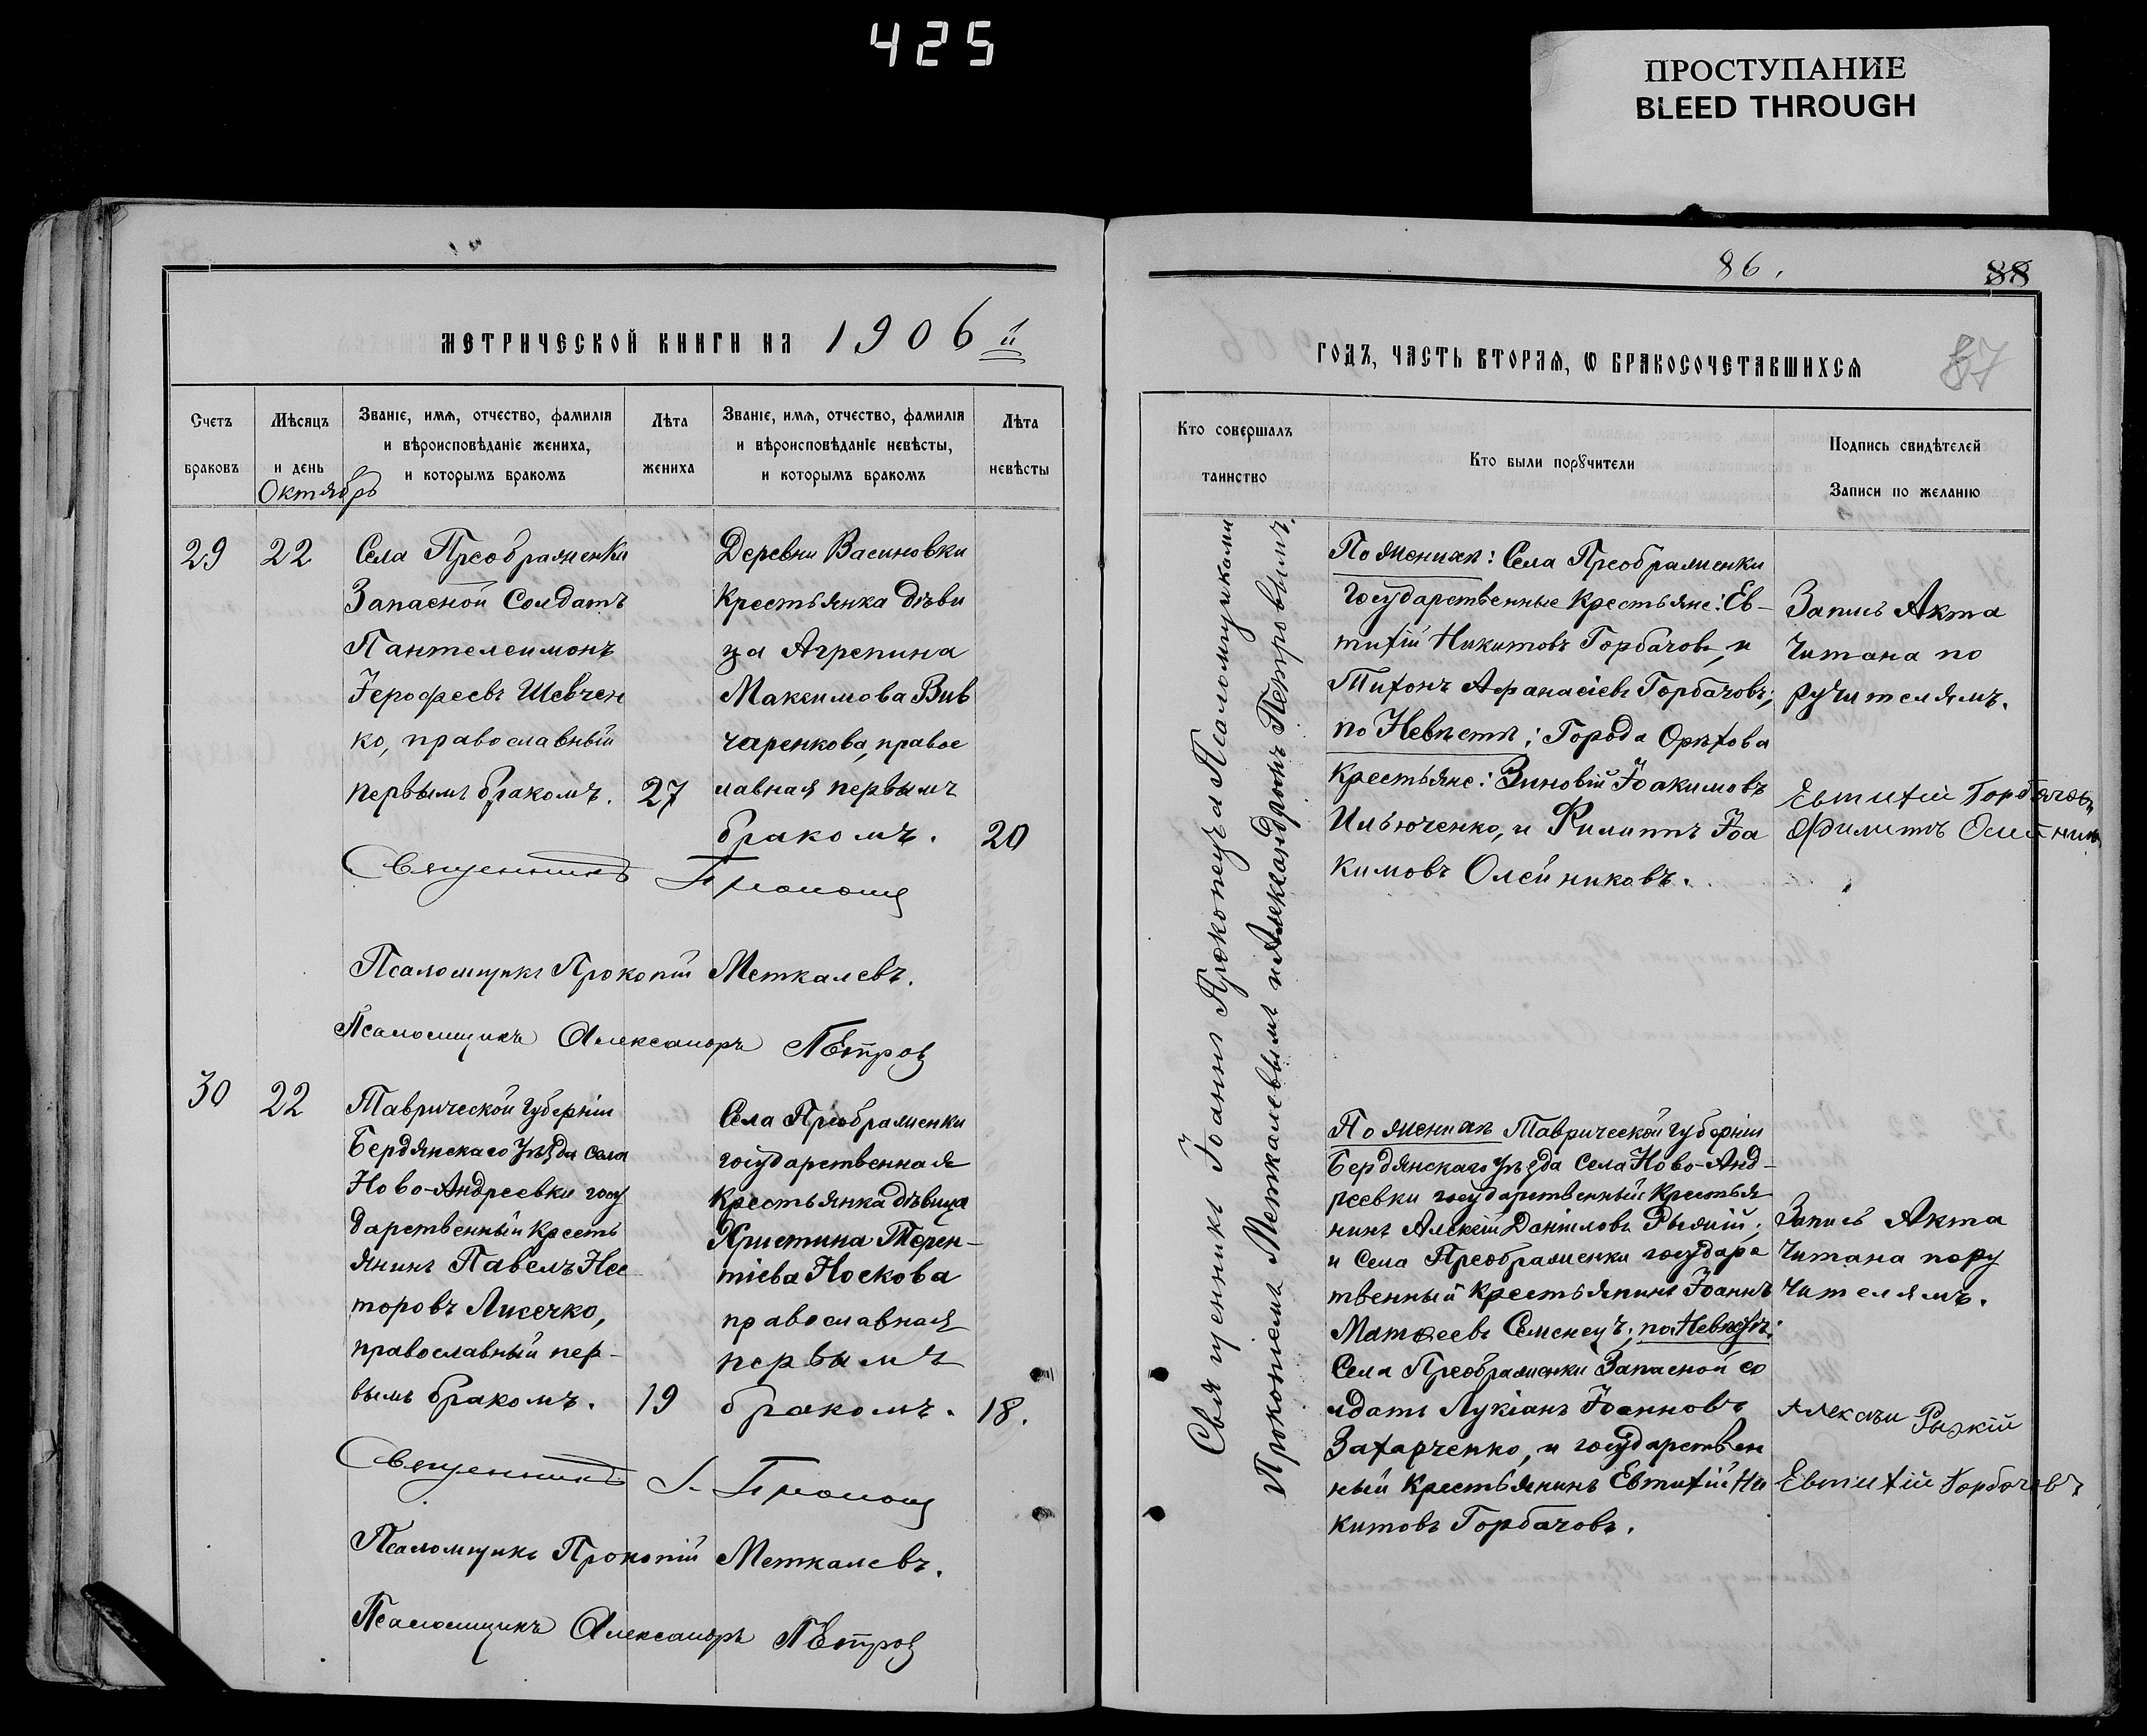 425
ПРОСТУПАНИЕ
BLEED THROUGH
86.
88
87
МЕТРИЧЕСКОЙ КНИГИ НА 1906 й
ГОДЪ, ЧАСТЬ ВТОРАЯ, Ѡ БРАКОСОЧЕТАВШИХСЯ
Счетъ
браковъ
Мѣсяцъ
и день
Октябрь
Званіе, имя, отчество, фамилія
и вѣроисповѣданіе жениха,
и которымъ бракомъ
Лѣта
жениха
Званіе, имя, отчество, фамилія
и вѣроисповѣданіе невѣсты,
и которымъ бракомъ
Лѣта
невѣсты
Кто совершалъ
таинство
Кто были порꙋчители
Подпись свидѣтелей
Записи по желанію
29
22
Села Преображенки
Запасной Солдатъ
Пантелеимонъ
Іерофеевъ Шевчен
ко, православный
первымъ бракомъ.
27
Деревни Васиновки
Крестьянка дѣви
ца Агрепина
Максимова Вив
чаренкова, правос
лавная первымъ
бракомъ.
20
Священникъ
Псаломщикъ Прокопій Меткалевъ.
Псаломщикъ Александръ Пѣтровъ
Священникъ Іоаннъ Прокопецъ съ Псаломщиками
Прокопіемъ Меткалевымъ и Александромъ Петровымъ.
По женихѣ: Села Преображенки
государственные Крестьяне: Ев-
тихій Никитовъ Горбачовъ, и
Тихонъ Афанасіевъ Горбачовъ;
по Невѣстѣ: Города Орѣхова
Крестьяне: Зиновій Іоакимовъ
Ильюченко, и Филиппъ Іоа
кимовъ Олейниковъ.
Запись Акта
Читана по
ручителямъ.
Евтихій Горбачовъ
Филипъ Олейник
30
22
Таврической Губерніи
Бердянскаго Уѣзда Села
Ново-Андреевки госу
дарственный Кресть
янинъ Павелъ Нес
торовъ Лисечко,
православный пер-
вымъ бракомъ.
19
Села Преображенки
государственная
Крестьянка дѣвица
Христина Терен-
тіева Носкова
православная
первымъ
бракомъ.
18.
Священникъ І.
Псаломщикъ Прокопій Меткалевъ.
Псаломщикъ Александръ Пѣтровъ
По женихѣ Таврической губерніи
Бердянскаго Уѣзда Села Ново-Анд-
реевки государственный Крестья
нинъ Алекѣй Даніловъ Рыжій;
и Села Преображенки государс
твенный Крестьянинъ Іоаннъ
Матѳеевъ Семенецъ; по Невѣстѣ:
Села Преображенки Запасной со
лдатъ Лукіанъ Іоанновъ
Захарченко, и государствен
ный Крестьянинъ Евтихій Ни
китовъ Горбачовъ.
Запись Акта
Читана пору
чителямъ.
Алексѣи Рыжкій
Евтихій Горбачовъ